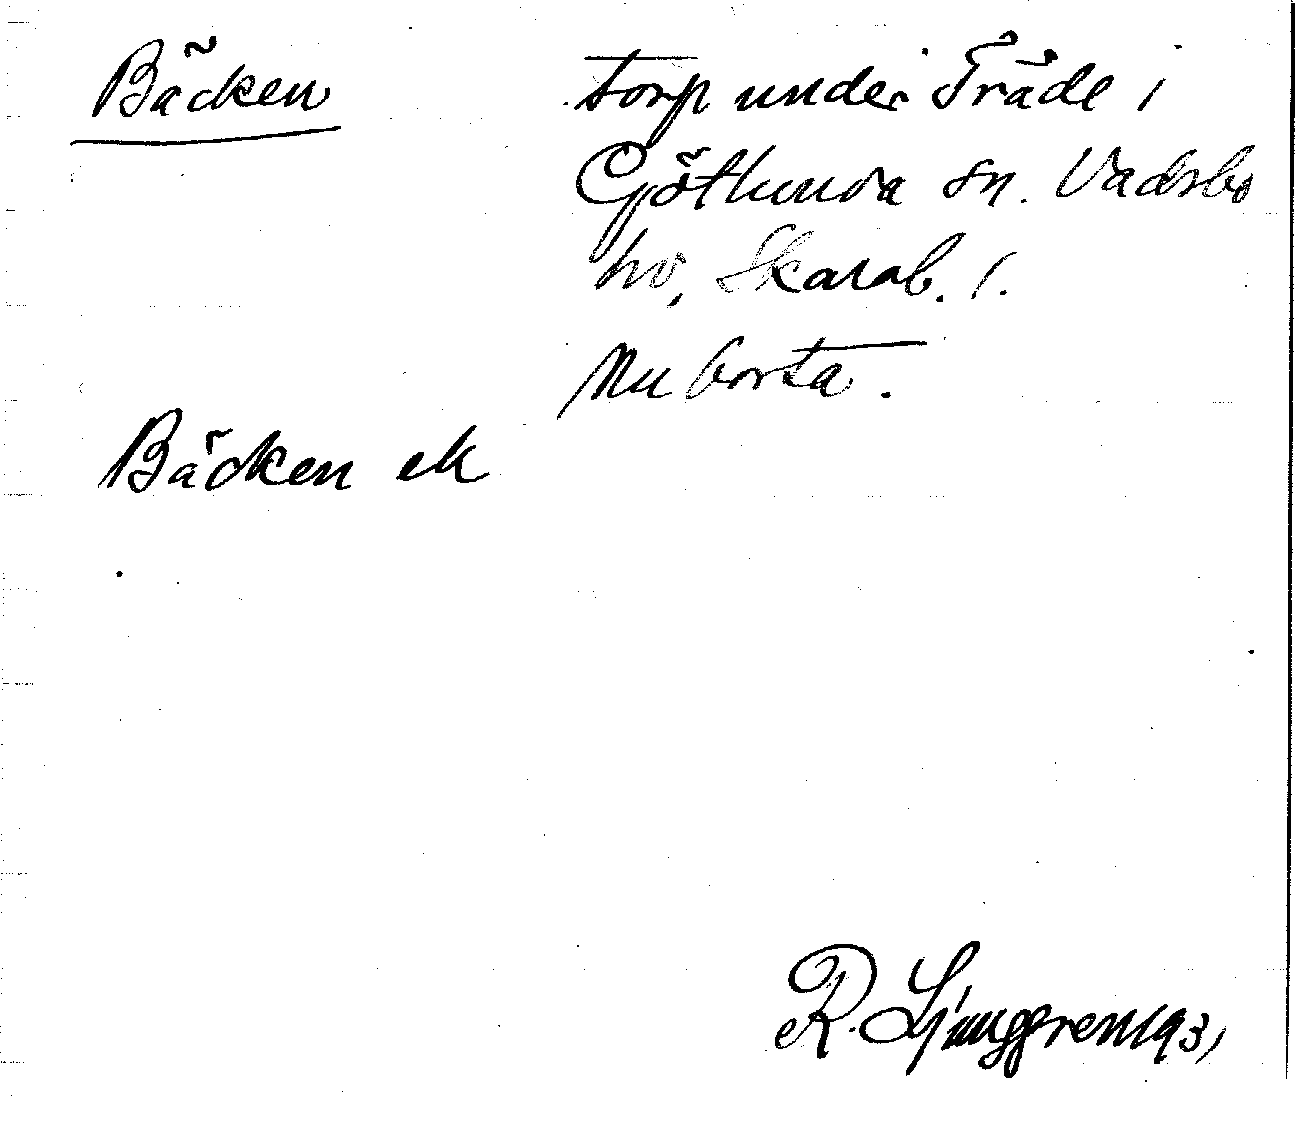 Bäcken
torp under Träde i
Götlunda sn. Vadsbo
hd, Skarab. l.
Nu borta.
Bäcken ek
R. Ljunggren 1931